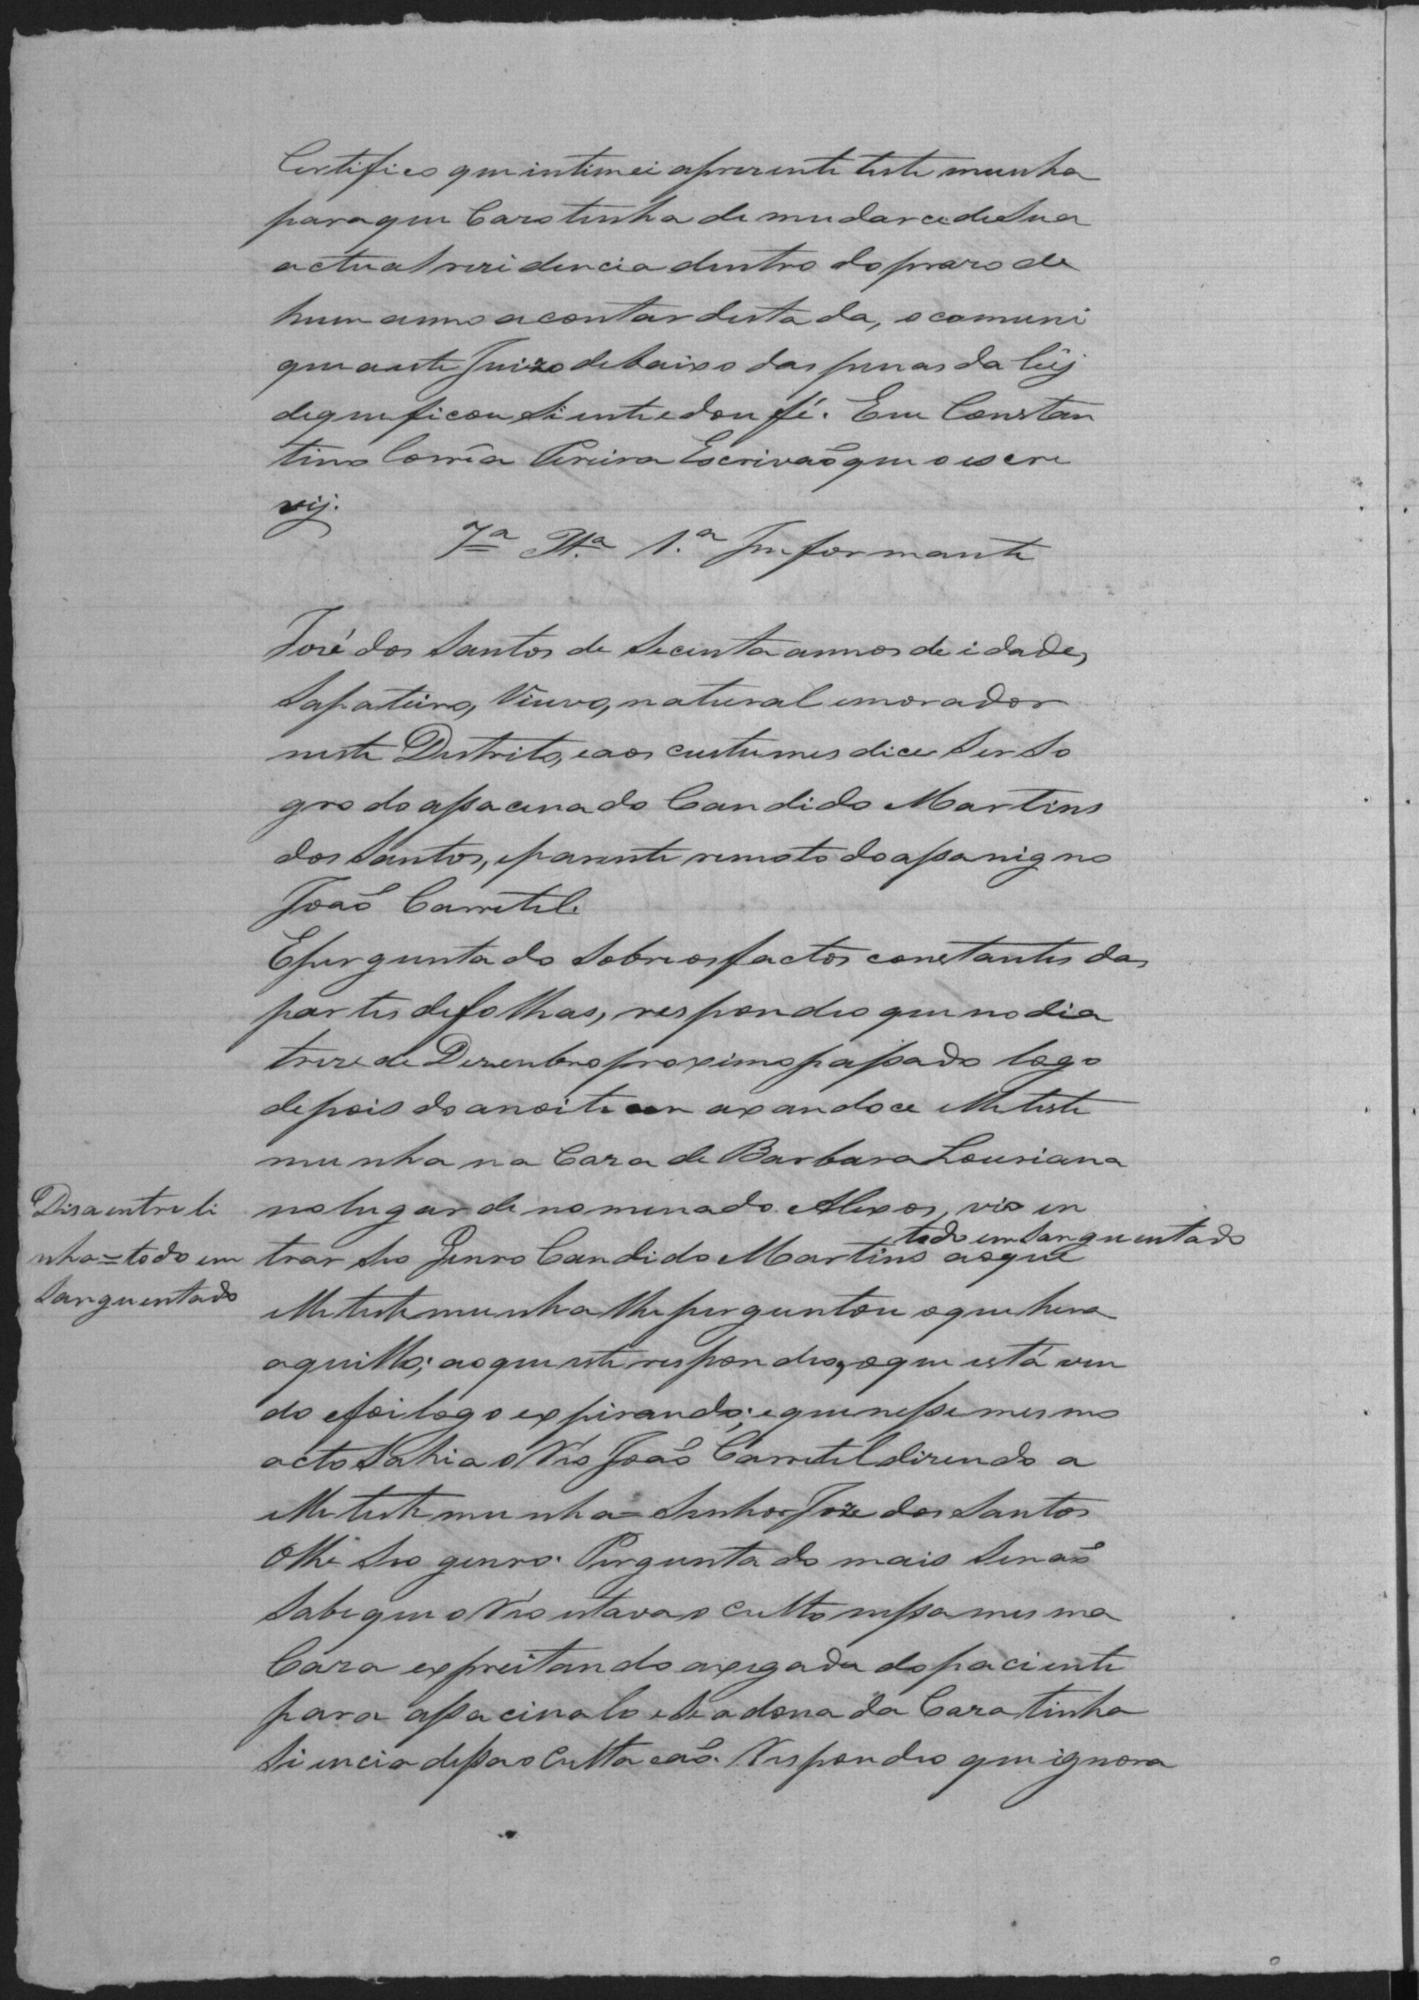 Certifico que intimei aprezente teste munha
para que Cazo tinha de mudarce de Sua
actual rezidencia dentro do prazo de
hum anno acontar desta da, o comuni
que a este Juizo debaixo das penas da leij
de que ficou siente e dou fé. Eu Constan
tino Corrêa Pereira Escrivaõ que o escre
vij.
7ª Ttª 1.ª Informante
José dos Santos de Secenta annos de idade,
Sapateiro, Viuvo, natural emorador
neste Destrito, eaos custumes dice Ser So
gro do assacenado Candido Martins
dos Santos, eparente remoto do assanigno
Joaõ Carretel.
Epergunta do Sobre os factos constantes das
partes de folhas, respondeo que no dia
treze de Dezembro proximo passado logo
depois do anoitecer axandoce elle teste
munha na Caza de Barbara Louriana
no lugar denominado Alexos, vio en
trar Seo Genro Candido Martins todo emSanguentado aoque
Disa entre li
nha = todo em
Sanguentado
elle testemunha lhe perguntou oque hera
aquillo; ao que este respondeo, oque está ven
do efoi logo expirando; e que nesse mesmo
acto Sahia o Réo Joaõ Carretel dizendo a
elle teste munha = Senhor Joze dos Santos
Olhe Seo genro. Pergunta do mais Senaõ
Sabe que o Réo estava o culto nessa mesma
Caza expreitando axegada do paciente
para assacinalo e Se adona da Caza tinha
Siencia dessa o culta caõ. Respondeo que ignora